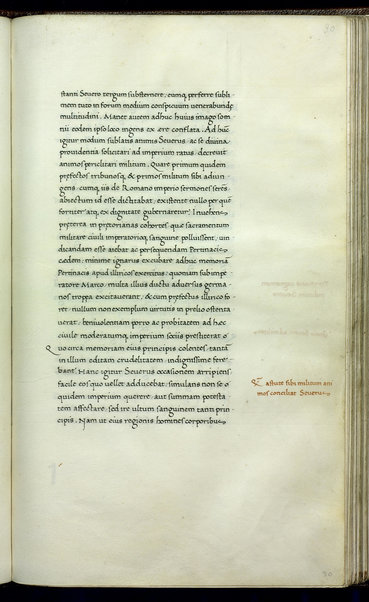 30
stanti Severo tergum substernere, cumq, perferre subli
mem tuto in forum modium conspicuum venerabundę
multitudini. Manet autem adhuc huius imago som
nii eodem ipso loco ingens ex ęre conflata. Ad hūc
igitur modum sublatis animis Severus, ac se divina
providentia solicitari ad imperium ratus, decrevit
animos periclitari militum. Quare primum quidem
pręfectos tribunosq, & primos militum sibi adiun
gens, cumq, iis de Romano imperio sermones serēs
abiectum id esse dictitabat, existente nullo per quē
fortiter atq, ex dignitate gubernaretur. Invehens
pręterea in pretorianas cohortes quę sacramentum
militare civili imperatorioq, sanguine polluissent, vin
dicandam esse aiebat ac persequendam Pertinacis
cędem, minime ignarus excubare adhuc memoriā
Pertinacis apud illiricos exercitus, quoniam sub impe
ratore Marco, multa illius ductu adversus germa
nos trophea excitauerant, & cum pręfectus illirico fo
ret, nullum non exemplum virtutis in prelio ostenta
verat, benivolentiam porro ac probitatem ad hęc
civile moderatumq, imperium sociis prestiterat
Quo circa memoriam eius principis colentes, tantā
in illum editam crudelitatem indignissime fere
bant. Hanc igitur Severus occasionem arripiens
facile eos quo vellet adducebat, simulans non se o
quidem imperium querere, aut summam potesta
tem affectare, sed ire ultum sanguinem tanti prin
cipis. Nam ut eius regionis homines corporibus
astute sibi militum ani
mos conciliat Severus
30